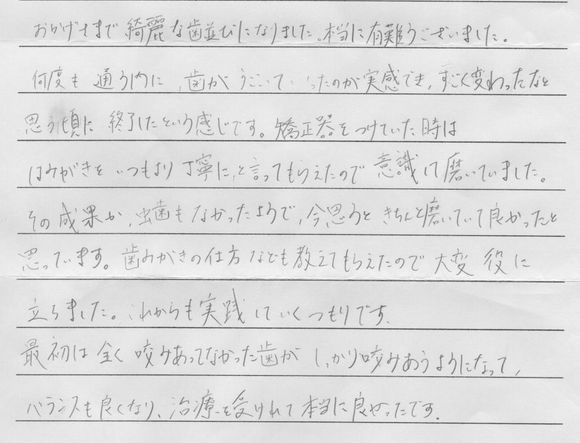 おかげさまで綺麗な歯並びになりました。本当に有難うございました。
何度も通う内に、歯がうごいていったのが実感でき、すごく変わったなと
思う頃に終了したという感じです。矯正器をつけていた時は
はみがきをいつもより丁寧に、と言ってもらえたので意識して磨いていました。
その成果か、虫歯もなかったようで、今思うときちんと磨いていて良かったと
思っています。歯みがきの仕方なども教えてもらえたので大変役に
立ちました。これからも実践していくつもりです。
最初は全く咬みあってなかった歯がしっかり咬みあうようになって、
バランスも良くなり、治療を受けれて本当に良かったです。